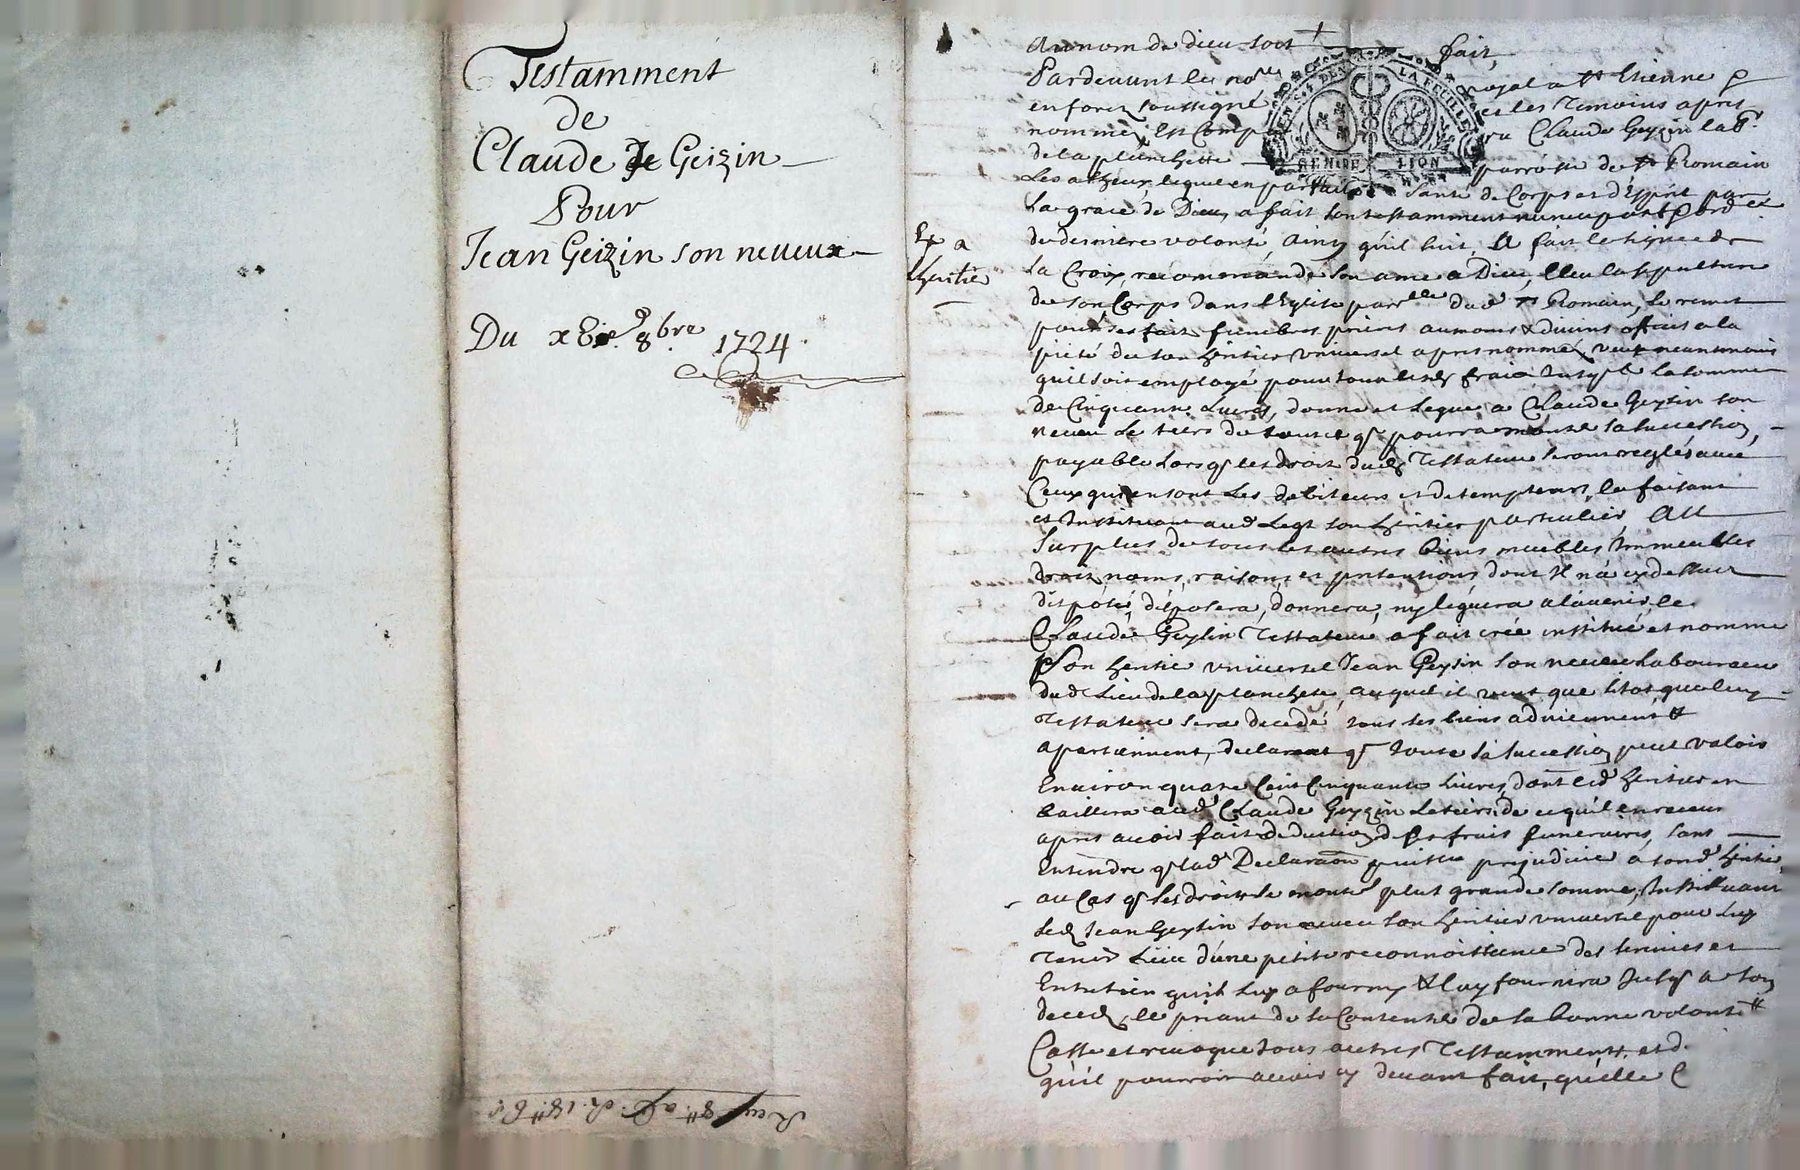 Testamment
de
Claude Geizin
Pour
Jean Geizin son neveux
Du 8bre 1724
Exa
heritie
Au nom de dieu soit fait,
Pardevant le nore royal a st Etienne
en forez soussigné et les temoins apres
nommés Est Comparu Claude Geyzin labr
de la planchette parroisse de st Romain
Les atheux lequel en parfaite santé de Corps et d'Esprit par
la grace de Dieu, a fait son testamment nuncupatif et ord
de derniere volonté Ainsy qu'il suit, A fait le signe de
la Croix, recommandé son ame a Dieu, Eleu la sepulture
de son Corps dans l'Eglise parlle dud st Romain, se remet
pour ses fait funebres prieres aumones & divins offices a la
pieté de son heritier universel apres nommé, veut neantmoins
qu'il soit employé pour tous lesd frais Jusqu'a la somme
de Cinquante Livres, donne et legue a Claude Geyzin son
neveu Le tiers de toute qs pourra monter sa succession,
payable lors qs les droit dud Testateur seront reglés avec
Ceux qui en sont Les debiteurs et detempteurs, le faisant
et Instituant aud Legt son heritier particulier, Au
surplus de tous les autres biens meubles Immeubles
droit noms, raisons et pretentions dont Il n'a cy dessus
disposé, disposera, donnera, ny léguera a l'avenir, le
Claude Geyzin Testateur a fait créé institué et nommé
Son heritie universel Jean Geyzin son neveu laboureur
dud Lieu de la planchette, auquel il veut que sitot que luy
Testateur sera decedé tous ses biens adviennent &
apartiennent, declarant qs toute sa succession peut valoir
Environ quatre Cent Cinquante Livres, dont led heritier en
baillera aud Claude Geyzin Le tiers de ce qu'il en recevra
apres avoir fait deduction des frais funeraires, sans
Entendre qs lad Declaraon puisse prejudicier a sond heritie,
au Cas qs ses droits se monte plus grande somme, Instituant
led Jean Geyzin son neveu son heritier universel pour luy
Tenir Lieu d'une petite reconnoissance des services et
Entretien qu'il luy a fourny & luy fournira Jusqs a son
deced, le priant de se Contenter de sa bonne volonté
Casse et revoque tous autres Testamments et d.
qu'il pourroit avoir cy devant fait, qu'elle